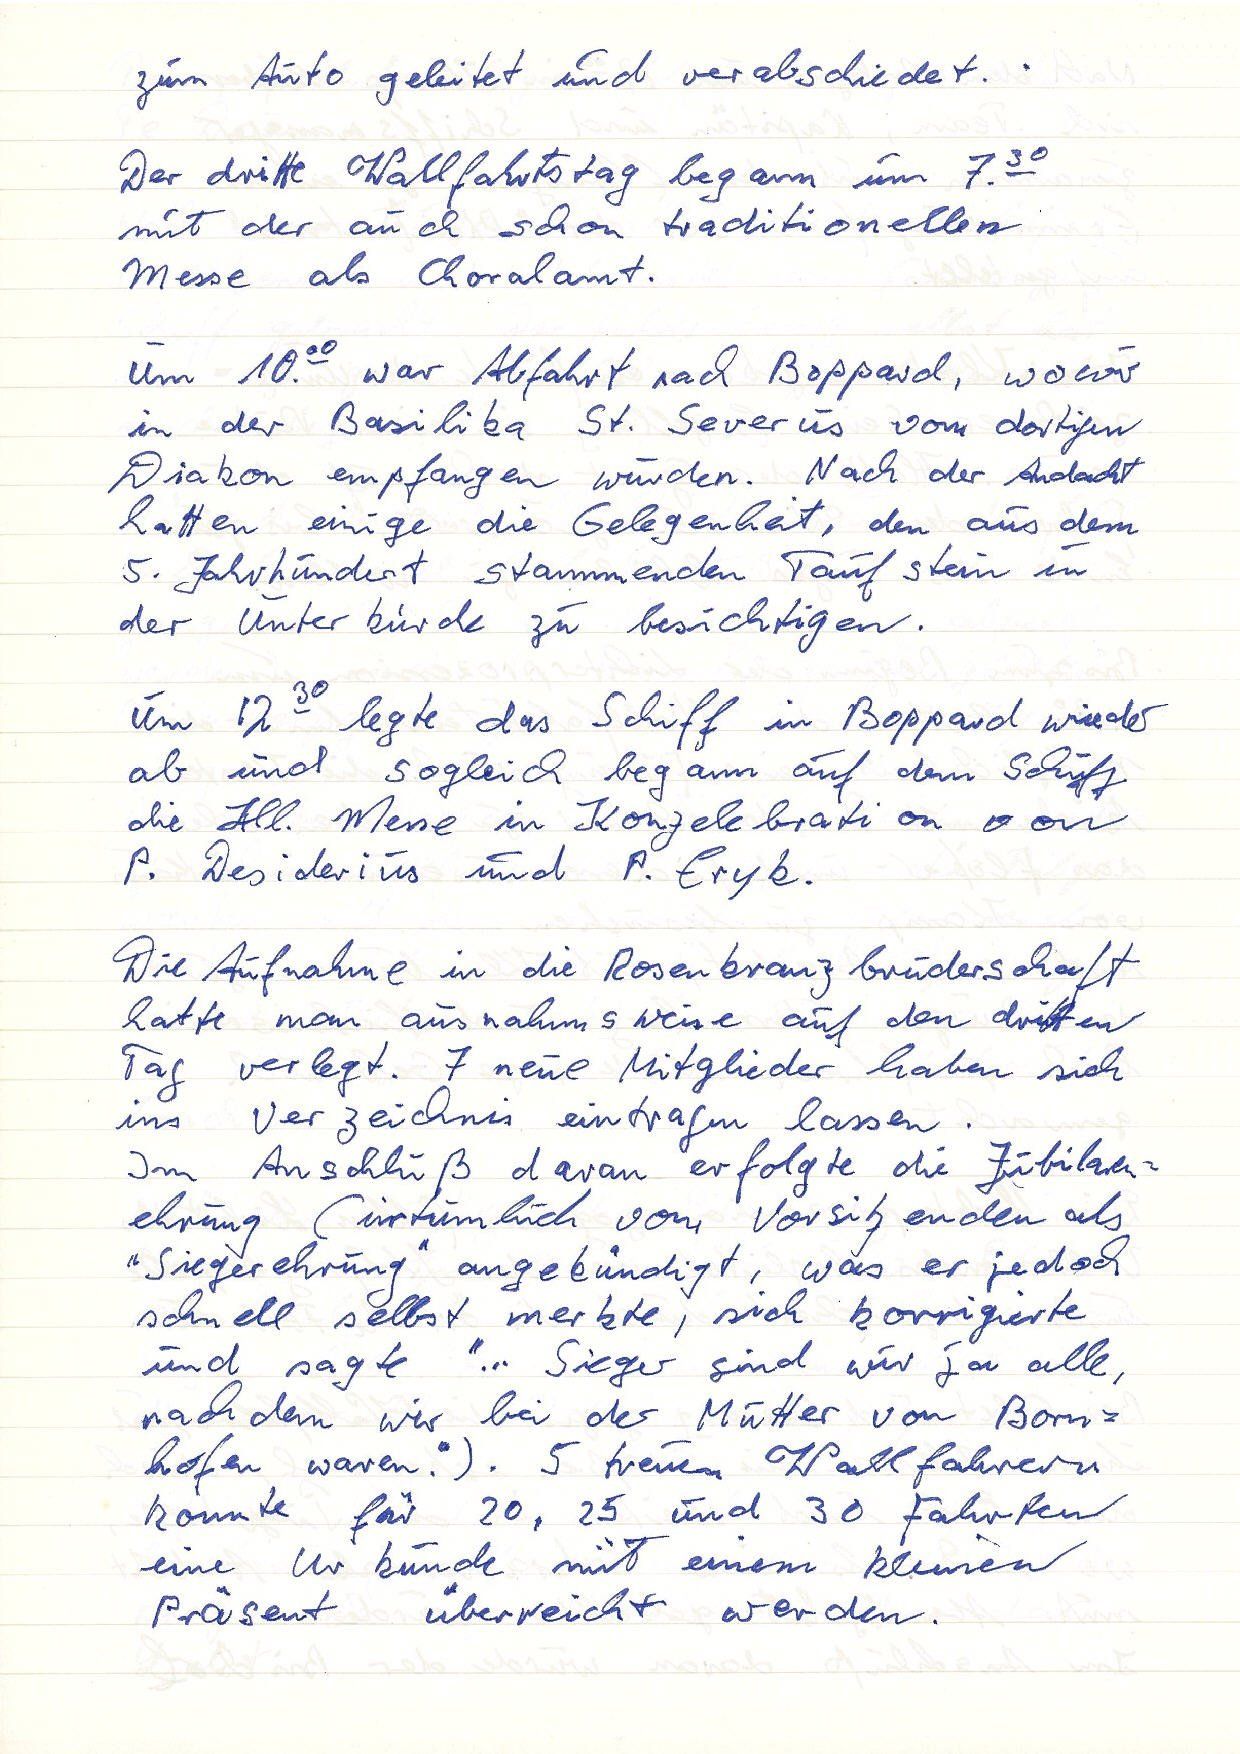 zum Auto geleitet und verabschiedet.
Der dritte Wallfahrtstag begann um 7.30
mit der auch schon traditionellen
Messe als Choralamt.
Um 10.00 war Abfahrt nach Boppard, wo wir
in der Basilika St. Severus vom dortigen
Diakon empfangen wurden. Nach der Andacht
hatten einige die Gelegenheit, den aus dem
5. Jahrhundert stammenden Taufstein in
der Unterkirche zu besichtigen.
Um 12 30 legte das Schiff in Boppard wieder
ab und sogleich begann auf dem Schiff
die Hll. Messe in Konzelebration von
P. Desiderius und P. Eryk.
Die Aufnahme in die Rosenkranzbruderschaft
hatte man ausnahmsweise auf den dritten
Tag verlegt. 7 neue Mitglieder haben sich
ins Verzeichnis eintragen lassen.
Im Anschluß daran erfolgte die Jubilaren=
ehrung (irrtümlich vom Vorsitzenden als
"Siegerehrung" angekündigt, was er jedoch
schnell selbst merkte, sich korrigierte
und sagte "... Sieger sind wir ja alle,
nachdem wir bei der Mutter von Born=
hofen waren."). 5 treuen Wallfahrern
konnte für 20, 25 und 30 Fahrten
eine Urkunde mit einem kleinen
Präsent überreicht werden.